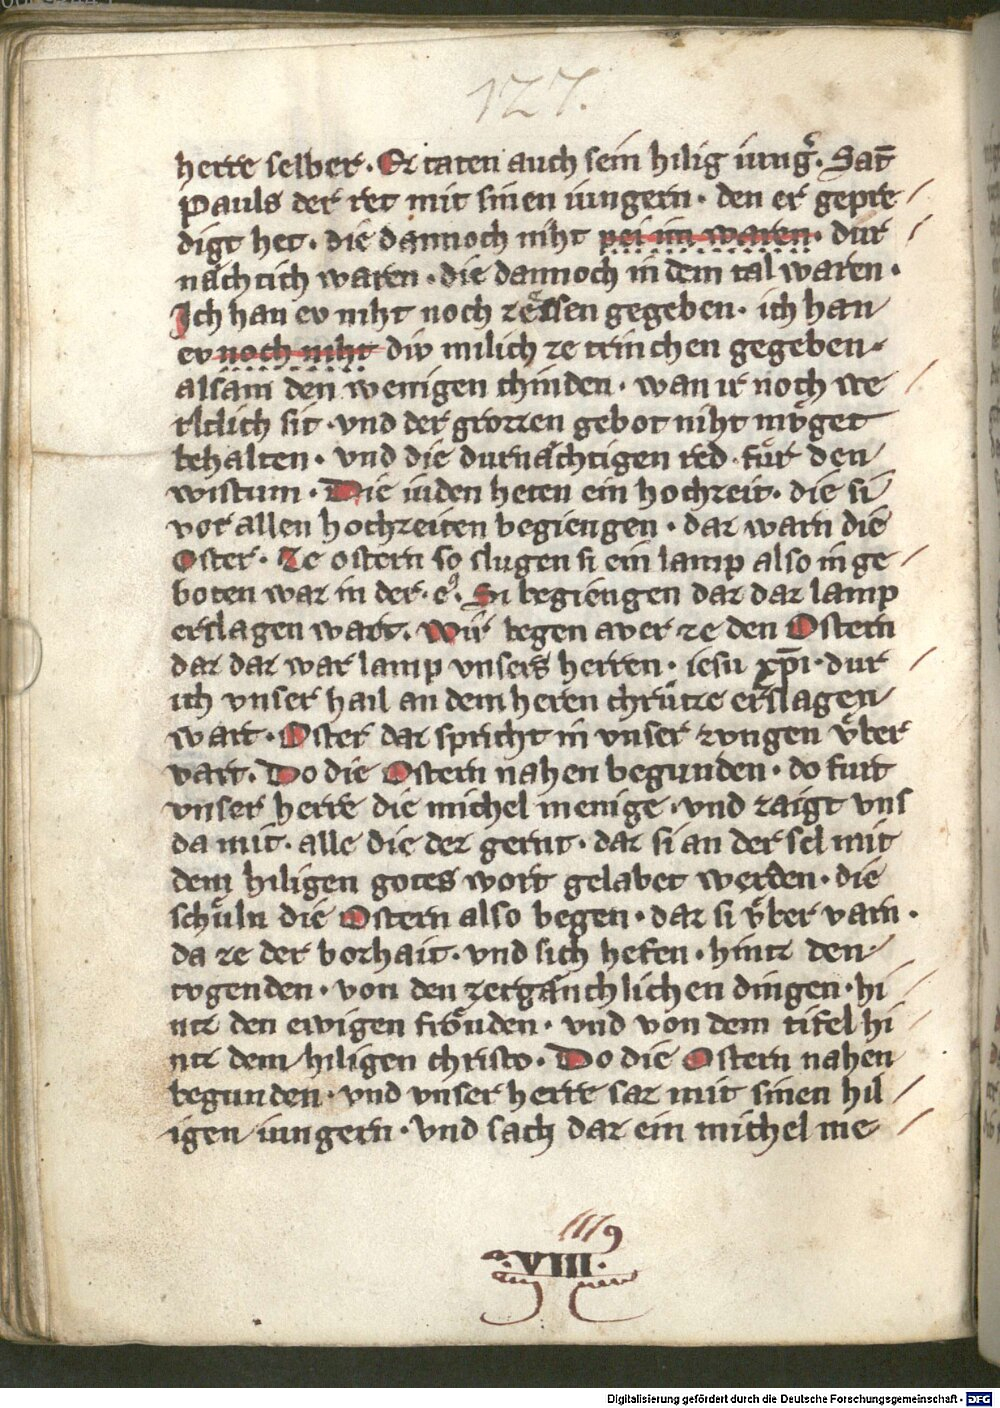 127.
herre selber. Ez taten auch sein hilig iungͣ. Sat̄
Pauls der ret mit sinen iungern. den er gepre
digt het. die dannoch niht pei im waren. dur
nachtich waren. die dannoch in dem tal waren.
Ich han ev niht noch zeͤssen gegeben. ich han
ev noch niht div milich ze trinchen gegeben.
alsam den wenigen chinden. wan ir noch we
rltlich sit. vnd der grozzen gebot niht mvͤget
behalten. vnd die durnaͤchtigen red fuͤr den
wistum. Die iuden heten ein hochzeit. die si
vor allen hochzeiten begiengen. daz warn die
Oster. Ze ostern so slugen si ein lamp also in ge
boten waz in der e. Si begiengen daz daz lamp
erslagen wart. Wir begen aver ze den Ostern
daz daz war lamp vnsers herren. iesu xp̄i. dur
ich vnser hail an dem heren chruͤtze erslagen
wart. Oster daz spricht in vnser zvngen vͤber
vart. Do die Ostern nahen begunden. do furt
vnser herre die michel menige. vnd zaigt vns
da mit. alle die dez gernt. daz si an der sel mit
dem hiligen gotes wort gelabet werden. die
schuͤln die Ostern also begen. daz si vͤber varn.
da ze der bozhait. vnd sich hefen. hintz den
tvgenden. von den zergaͤnchlichen dingen. hi
ntz den ewigen froͤuden. vnd von dem tifel hi
ntz dem hiligen christo. Do die Ostern nahen
begunden. vnd vnser herre saz mit sinen hil
igen iungern. vnd sach daz ein michel me
.VIII.
Digitalisierung gefördert durch die Deutsche Forschungsgemeinschaft - DFG